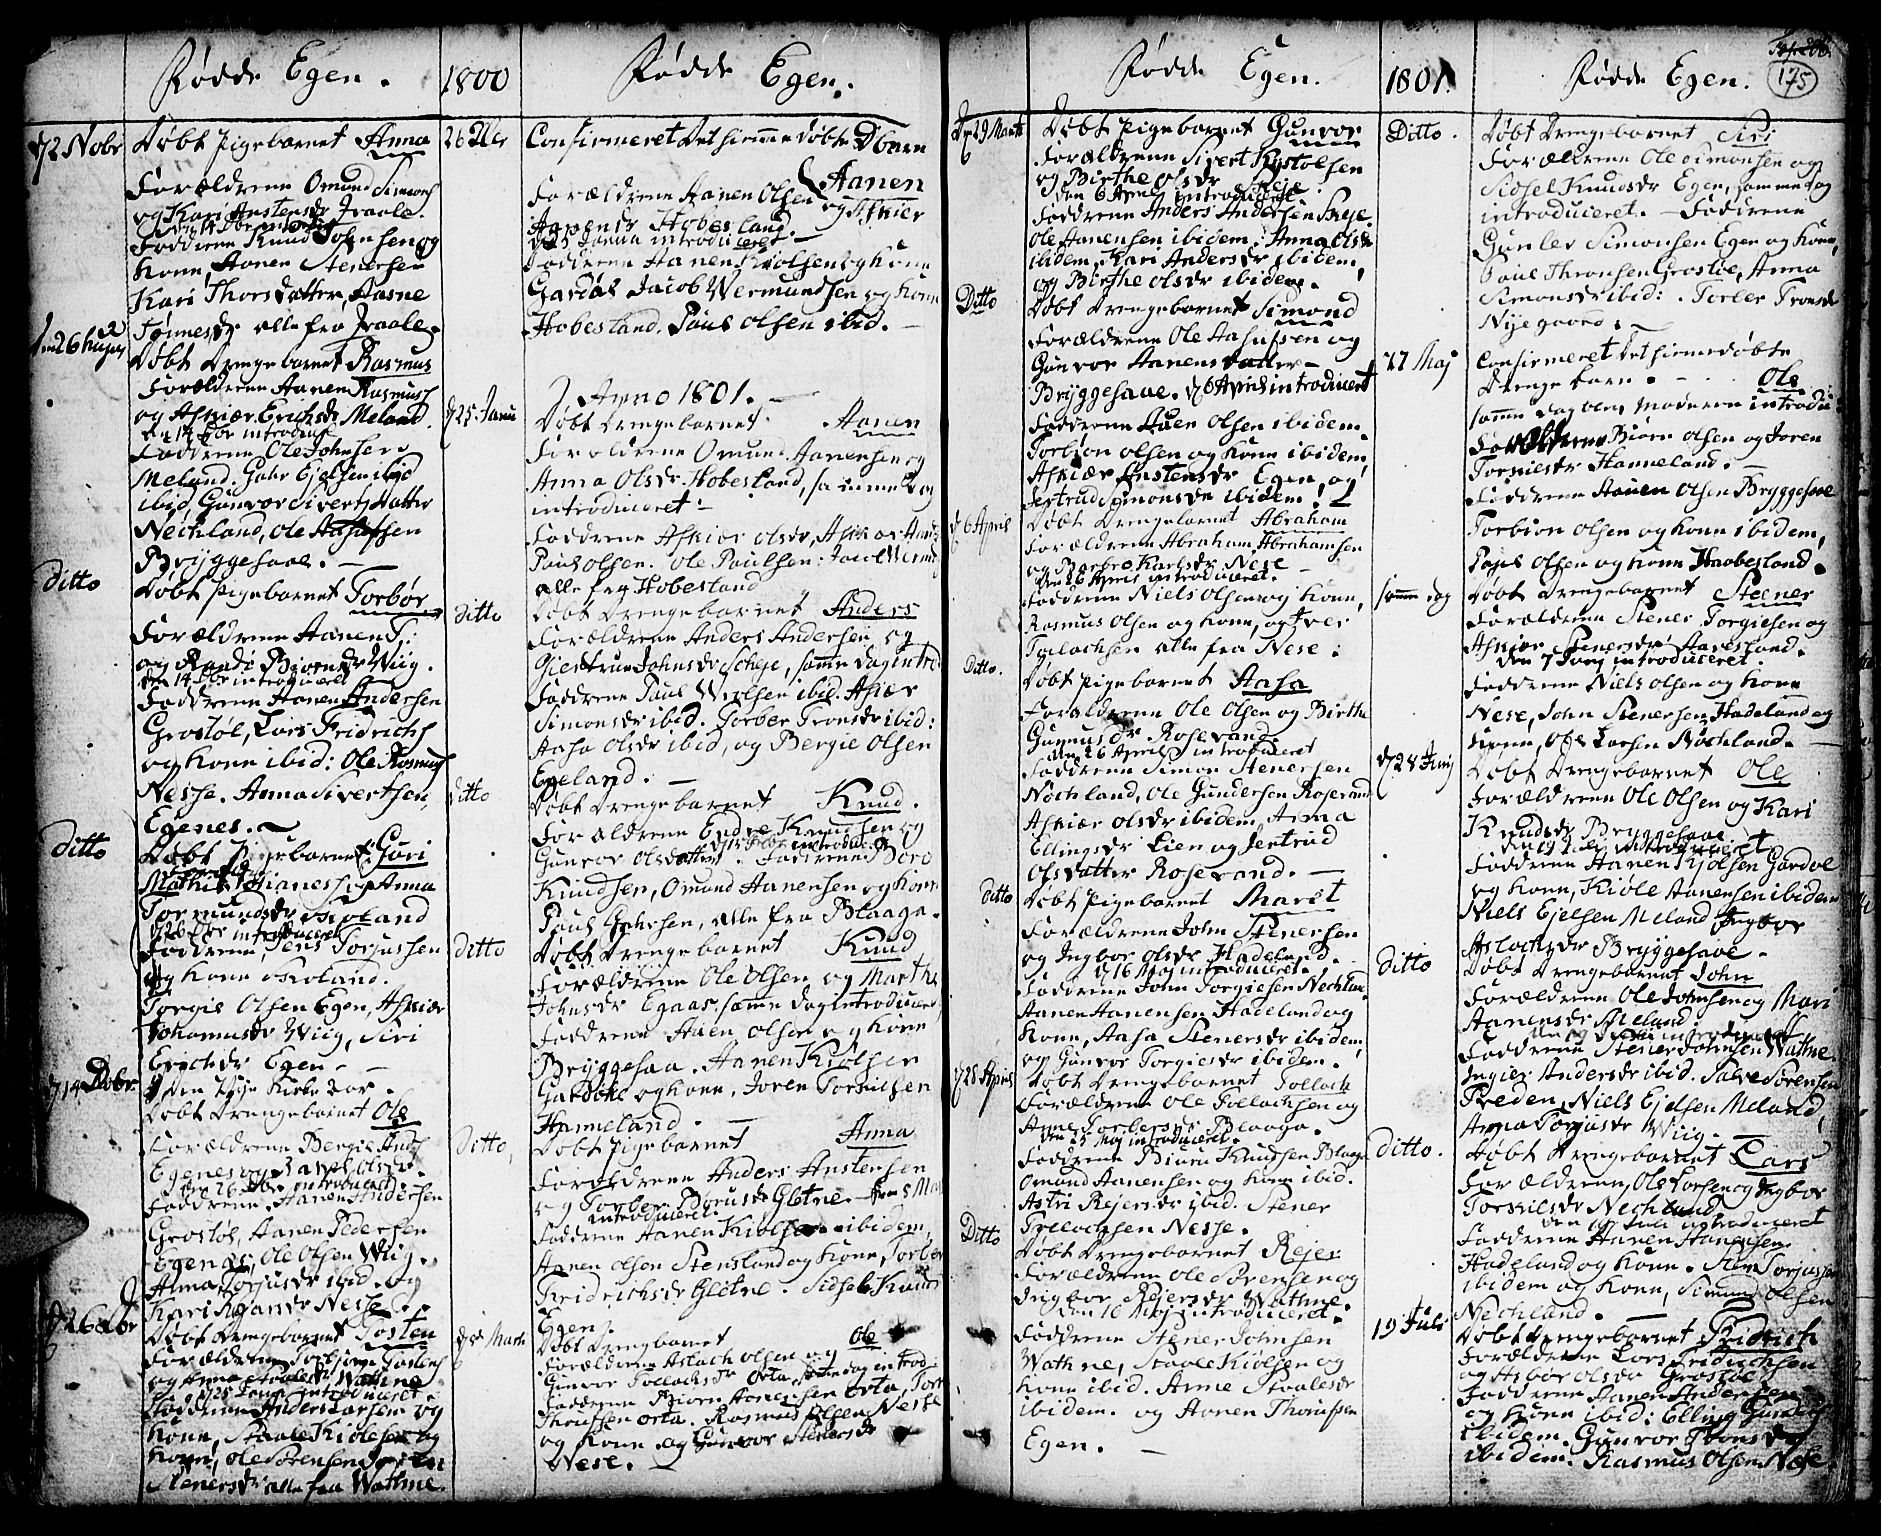 Fødde Egen.
d 2 Nobr
Døbt Pigebarnet Anna
Forældrene Omund Simons
og Kari Anstensdr Fraale.
Faddrene Knud Johnsen og
Kone, Aanen Stenersen
Kari Thorsdatter, Aasne
Tønnesdr alle fra Fraale.
den 26 hujus
Døbt Drenge barnet Rasmus
Forældrene Aanen Rasmus
og Askier Erichsdr Meland.
den 14 Xbr introduc
Faddrene Ole Johnsen
Meland. Gahr Ejelsen ibid
ibid, Gunvor Siverts Datter
Nechland, Ole Aasulfsen
Bryggesaae. -
Ditto
Døbt Pigebarnet Torbør
Forældrene Aanen T:
og Randi Biørnsdr Wiig.
den 14 Xbr introduceret
Faddrene Aanen Andersen
Grostøl, Lars Fridrichs
og Kone ibid: Ole Rasmus
Nesse. Anna Sivertsen
Egenes. -
Ditto
Døbt Pigebarnet Guri
Anna
Tormundsdr Roland
d 26 Xbr introduceret
Faddrene, Jens Torjussen
og Kone Roland.
Torgis Olsen Egen, Askier
Johannesdr Wiig, Siri
Erichsdr Egen -
d 14 Xobr
Døbt Drengebarnet Ole
Forældrene Bergie
Egenes og Olsdr
den 26 Xbr introduceret
Faddrene. Aanen Andersen
Grostøl, Aanen Pedersen
Egenes, Ole Olsen Wiig.
Anna Torjusdr ibid. og
Kari Nesse.
d 26 Xbr
Døbt Drengebarnet Tosten
Forældrene Torbjørn Tostens
og Anna Staalesdr Wathne
d 25 Janu introduceret
Faddrene Anders Larsen og
Kone, Staale Kiølsen og
Kone, Ole Sørensen
Stenersdr alle fra Wathne.
1800
Fødde Egen.
26 Xbr
Confirmeret Det hiemme Døbte Dbarn
Aanen
Forældrene Aanen Olsen og Askier
Aanensdr Hobesland.
d 25 Janua introduceret -
Faddrene Aanen Kiølsen og Kone
Gardøl, Jacob Wermundsen og Kone
Hobesland, Paul Olsen ibid. -
Anno 1801. -
d 25 Janu
Døbt Drengebarnet Aanen
Forældrene Omund Aanensen og
Anna Olsdr Hobesland, samme dag
introduceret -
Faddrene Askier Olsdr, Askier
Paul Olsen. Ole Paulsen.
alle fra Hobesland
Ditto
Døbt Drengebarnet Anders
Forældrene Anders Andersen og
Giertrud Johnsdr Scheje, samme dag introd
Faddrene Paul ibid. Askier
Simonsdr ibid. Torber Tronsdr ibid:
Aasa Olsdr ibid, og Bergie Olsen
Egeland. -
Ditto
Døbt Drengebarnet Knud.
Forældrene Endre Knudsen og
Gunvor Olsdatter. Faddrene
Knudsen, Omund Aanensen og Kone
Paul alle fra Blaaga.
Ditto
Døbt Drengebarnet Knud
Forældrene Ole Olsen og Marthe
Johnsdr Egaas, samme dag introduceret
Faddrene Auen Olsen og Kone
Bryggesaa. Aanen Kiølsen
Gardøl og Kone, Joren Torkildsen
Hanneland. -
Ditto
Døbt Pigebarnet Anna
Forældrene Anders Anstensen
og Torber Glotne. - den 8 Mar
introduceret.
Faddrene Aanen Kiølsen ibidem,
Aanen Olsen Stensland og Kone, Torber
Fridrichsdr Glotne. Sidsel Knuds
Egen.
d 8 Marti
Døbt Drengebarnet Ole
Forældrene Aslach Olsen og
Gunvor Tollachsdr Orta, samme dag introd
Faddrene Biørn Aanensen Orta,
Orta. Rasmus Olsen Nesse
og Kone og Gunvor Stenersdr
Nese. -
Fødde Egen.
d 29 Marti
Døbt Pigebarnet Gunvor
Forældrene Sivert Kystolsen
og Birthe Olsdr Skeje.
den 6 April introduceret.
Faddrene Anders Andersen Skeje
Ole Aanensen ibidem. Anna Olsdr
ibidem, Kari Andersdr ibidem
og Birthe Olsdr ibidem.
Ditto
Døbt Drengebarnet Simond
Forældrene Ole Aasulfsen og
Gunvor Aanensdatter -
Bryggesaae. d 6 April introduceret
Faddrene Auen Olsen ibidem.
Torbiøn Olsen og Kone ibidem
Askier Anstensdr Egen, og
Jertrud Simonsdr ibidem.
d 6 April
Døbt Drengebarnet Abraham
Forældrene Abraham Abrahamsen
og Barbro Karlsdr Nese
den 26 April introduceret.
Faddrene Niels Olsen og Kone,
Rasmus Olsen og Kone, og Iver
Tollachsen alle fra Nese.
Ditto.
Døbt Pigebarnet Aasa
Forældrene Ole Olsen og Birthe
Gunnusdr Rosevand.
den 26 April introduceret
Faddrene Simon Stenersen
Nöchland, Ole Gundersen Rosevand
Askier Olsdr ibidem, Anna
Ellingsdr Lien og Jertrud
Olsdatter Rosevand. -
Ditto
Døbt Pigebarnet Maret
Forældrene John Stenersen
og Ingbor Olsdr Hadeland.
d 16 Maj introduceret.
Faddrene John Torgiesen Nechlan
Aanen Aanensen Hadeland og
Kone, Aasa Stenersdr ibidem
og Gunvor Torgiesdr ibidem.
d 28 April
Døbt Drengebarnet Tollach
Forældrene Ole Tollachsen og
Anne Torbersdr Blaaga.
den 25 Maj introduceret.
Faddrene Biørn Knudsen Blaaga
Omund Aanensen og Kone ibid.
Astri Rejersdr ibid. Stener
Tollachsen Nesse.
Ditto
Døbt Drengebarnet Rejer
Forældrene Ole Sørensen og
Ingbor Rejersdr Wathne.
den 16 Maj introduceret.
Faddrene Stener Johnsen
Wathne, Staale Kiølsen og
Kone ibid. Anne Staalesdr
ibidem. og Aanen Thorufsen
Egen. -
1801.
Fødde Egen.
175
Ditto.
Døbt Drengebarnet Siri
Forældrene Ole Simonsen og
Sidsel Knudsdr Egen, samme dag
introduceret. - Faddrene
Gunler Simonsen Egen og Kone,
Paul Thronsen Grostøe, Anna
Simonsdr ibid: Torber Tronsdr
Nyegaard.
27 Maj
Confirmeret Det hiemmedøbte
Drenge barn. - Ole
samme dag blev Moderen introdu:
Forældrene Biørn Olsen og Joren
Torkilsdr Hanneland. -
Faddrene Aanen Olsen Bryggesaae
Torbiøn Olsen og Kone ibidem,
Paul Olsen og Kone Haabesland.
samme dag
Døbt Drengebarnet Steener
Forældrene Stener Torgiesen og
Askier Stenersdr Aavesland.
den 7 Junj introduceret.
Faddrene Niels Olsen og Kone
Nese, John Stenersen Hadeland og
Kone, Ole Larsen Nöchland. -
d 28 Junj
Døbt Drengebarnet Ole
Forældrene Ole Olsen og Kari
Knudsdr Bryggesaae.
den 19 Julj introduceret
Faddrene Aanen Kjølsen Gardøl
og Kone, Kiøle Aanensen ibidem
Niels Ejelsen Meland Ingbor
Aslachsdr Bryggesaae.
Ditto
Døbt Drengebarnet John
Forældrene Ole Johnsen og Mari
Aanensdr Meland.
Faddrene Stener Johnsen Wathne.
Ingier Andersdr ibid. Salve Sørensen
Treden, Niels Ejelsen Meland,
Anna Torjusdr Wiig. -
Ditto.
Døbt Drengebarnet Lars
Forældrene, Ole Larsen og Ingbor
Torkilsdr Nechland
den 19 Juli introduceret
Faddrene Aanen Aanensen
Hadeland og Kone. Sten Torjussen
ibidem og Kone, Simund Olsen
Nechland. -
19 Juli
Døbt Drengebarnet Fridrich
Forældrene Lars Fridrichsen
og Asbor Olsdr Grostøl
Faddrene Aanen Andersen
og Kone ibid: Elling Gunders
ibidem. Gunvor Tronsdr
ibidem. Rasmus Olsen Nese.